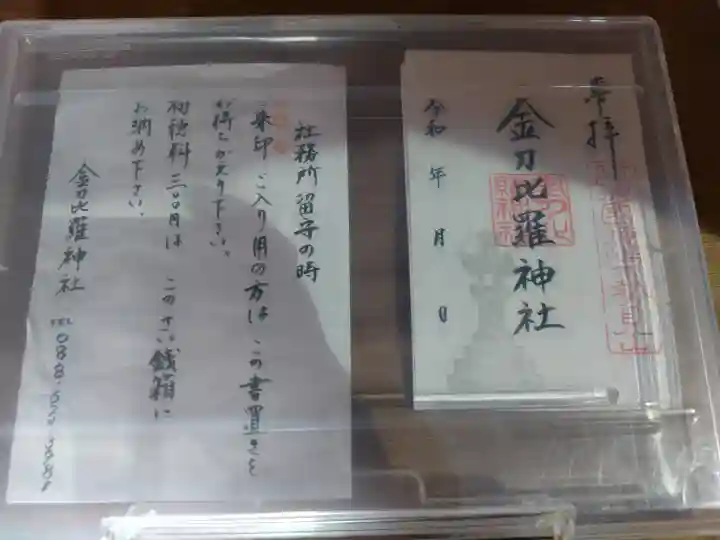 奉拝
金刀比羅神社
令和 年 月 日
社務所留守の時
朱印ご入り用の方はこの書置きを
お持ちかえり下さい。
初穂料三〇〇円はこのさい銭箱に
お納め下さい。
金刀比羅神社
TEL 088